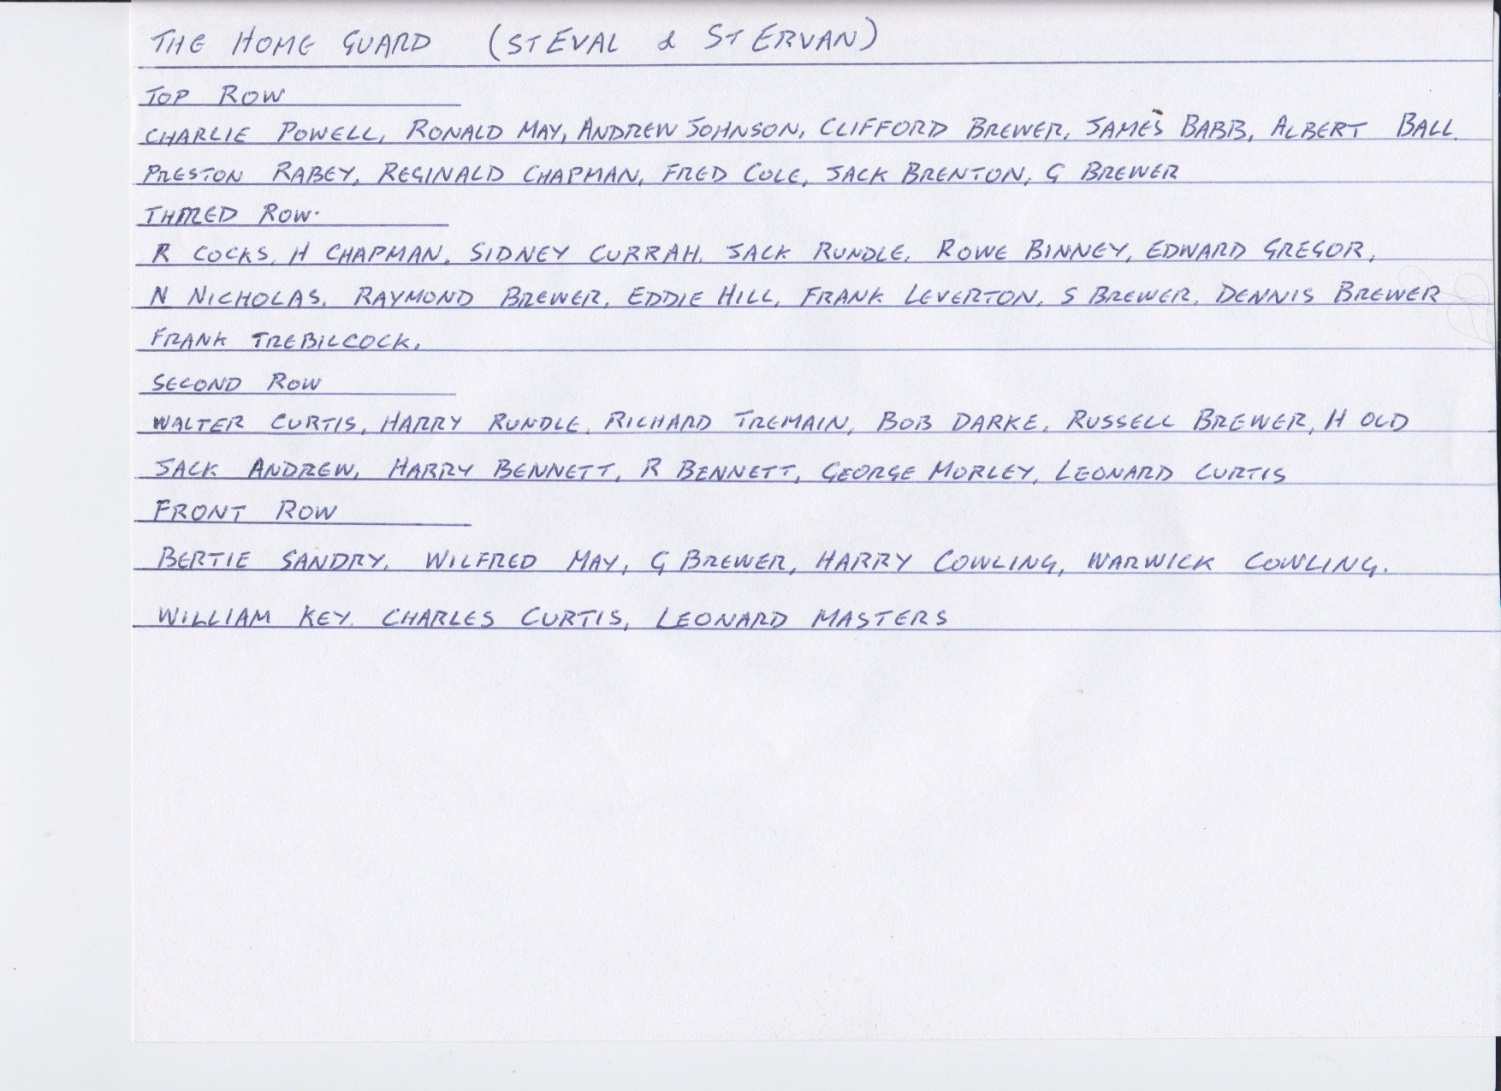 THE HOME GUARD (ST EVAL & ST ERVAN)
TOP ROW
CHARLIE POWELL, RONALD MAY, ANDREW JOHNSON, CLIFFORD BREWER, JAMES BABB, ALBERT BALL.
PRESTON RABEY, REGINALD CHAPMAN, FRED COLE, JACK BRENTON, G BREWER
THIRED ROW.
R COCKS, H CHAPMAN, SIDNEY CURRAH, JACK RUNDLE, ROWE BINNEY, EDWARD GREGOR,
N NICHOLAS, RAYMOND BREWER, EDDIE HILL, FRANK LEVERTON, S BREWER, DENNIS BREWER
FRANK TREBILCOCK.
SECOND ROW
WALTER CURTIS, HARRY RUNDLE, RICHARD TREMAIN, BOB DARKE, RUSSELL BREWER, H OLD
JACK ANDREW, HARRY BENNETT, R BENNETT, GEORGE MORLEY, LEONARD CURTIS
FRONT ROW
BERTIE SANDRY, WILFRED MAY, G BREWER, HARRY COWLING, WARWICK COWLING.
WILLIAM KEY, CHARLES CURTIS, LEONARD MASTERS